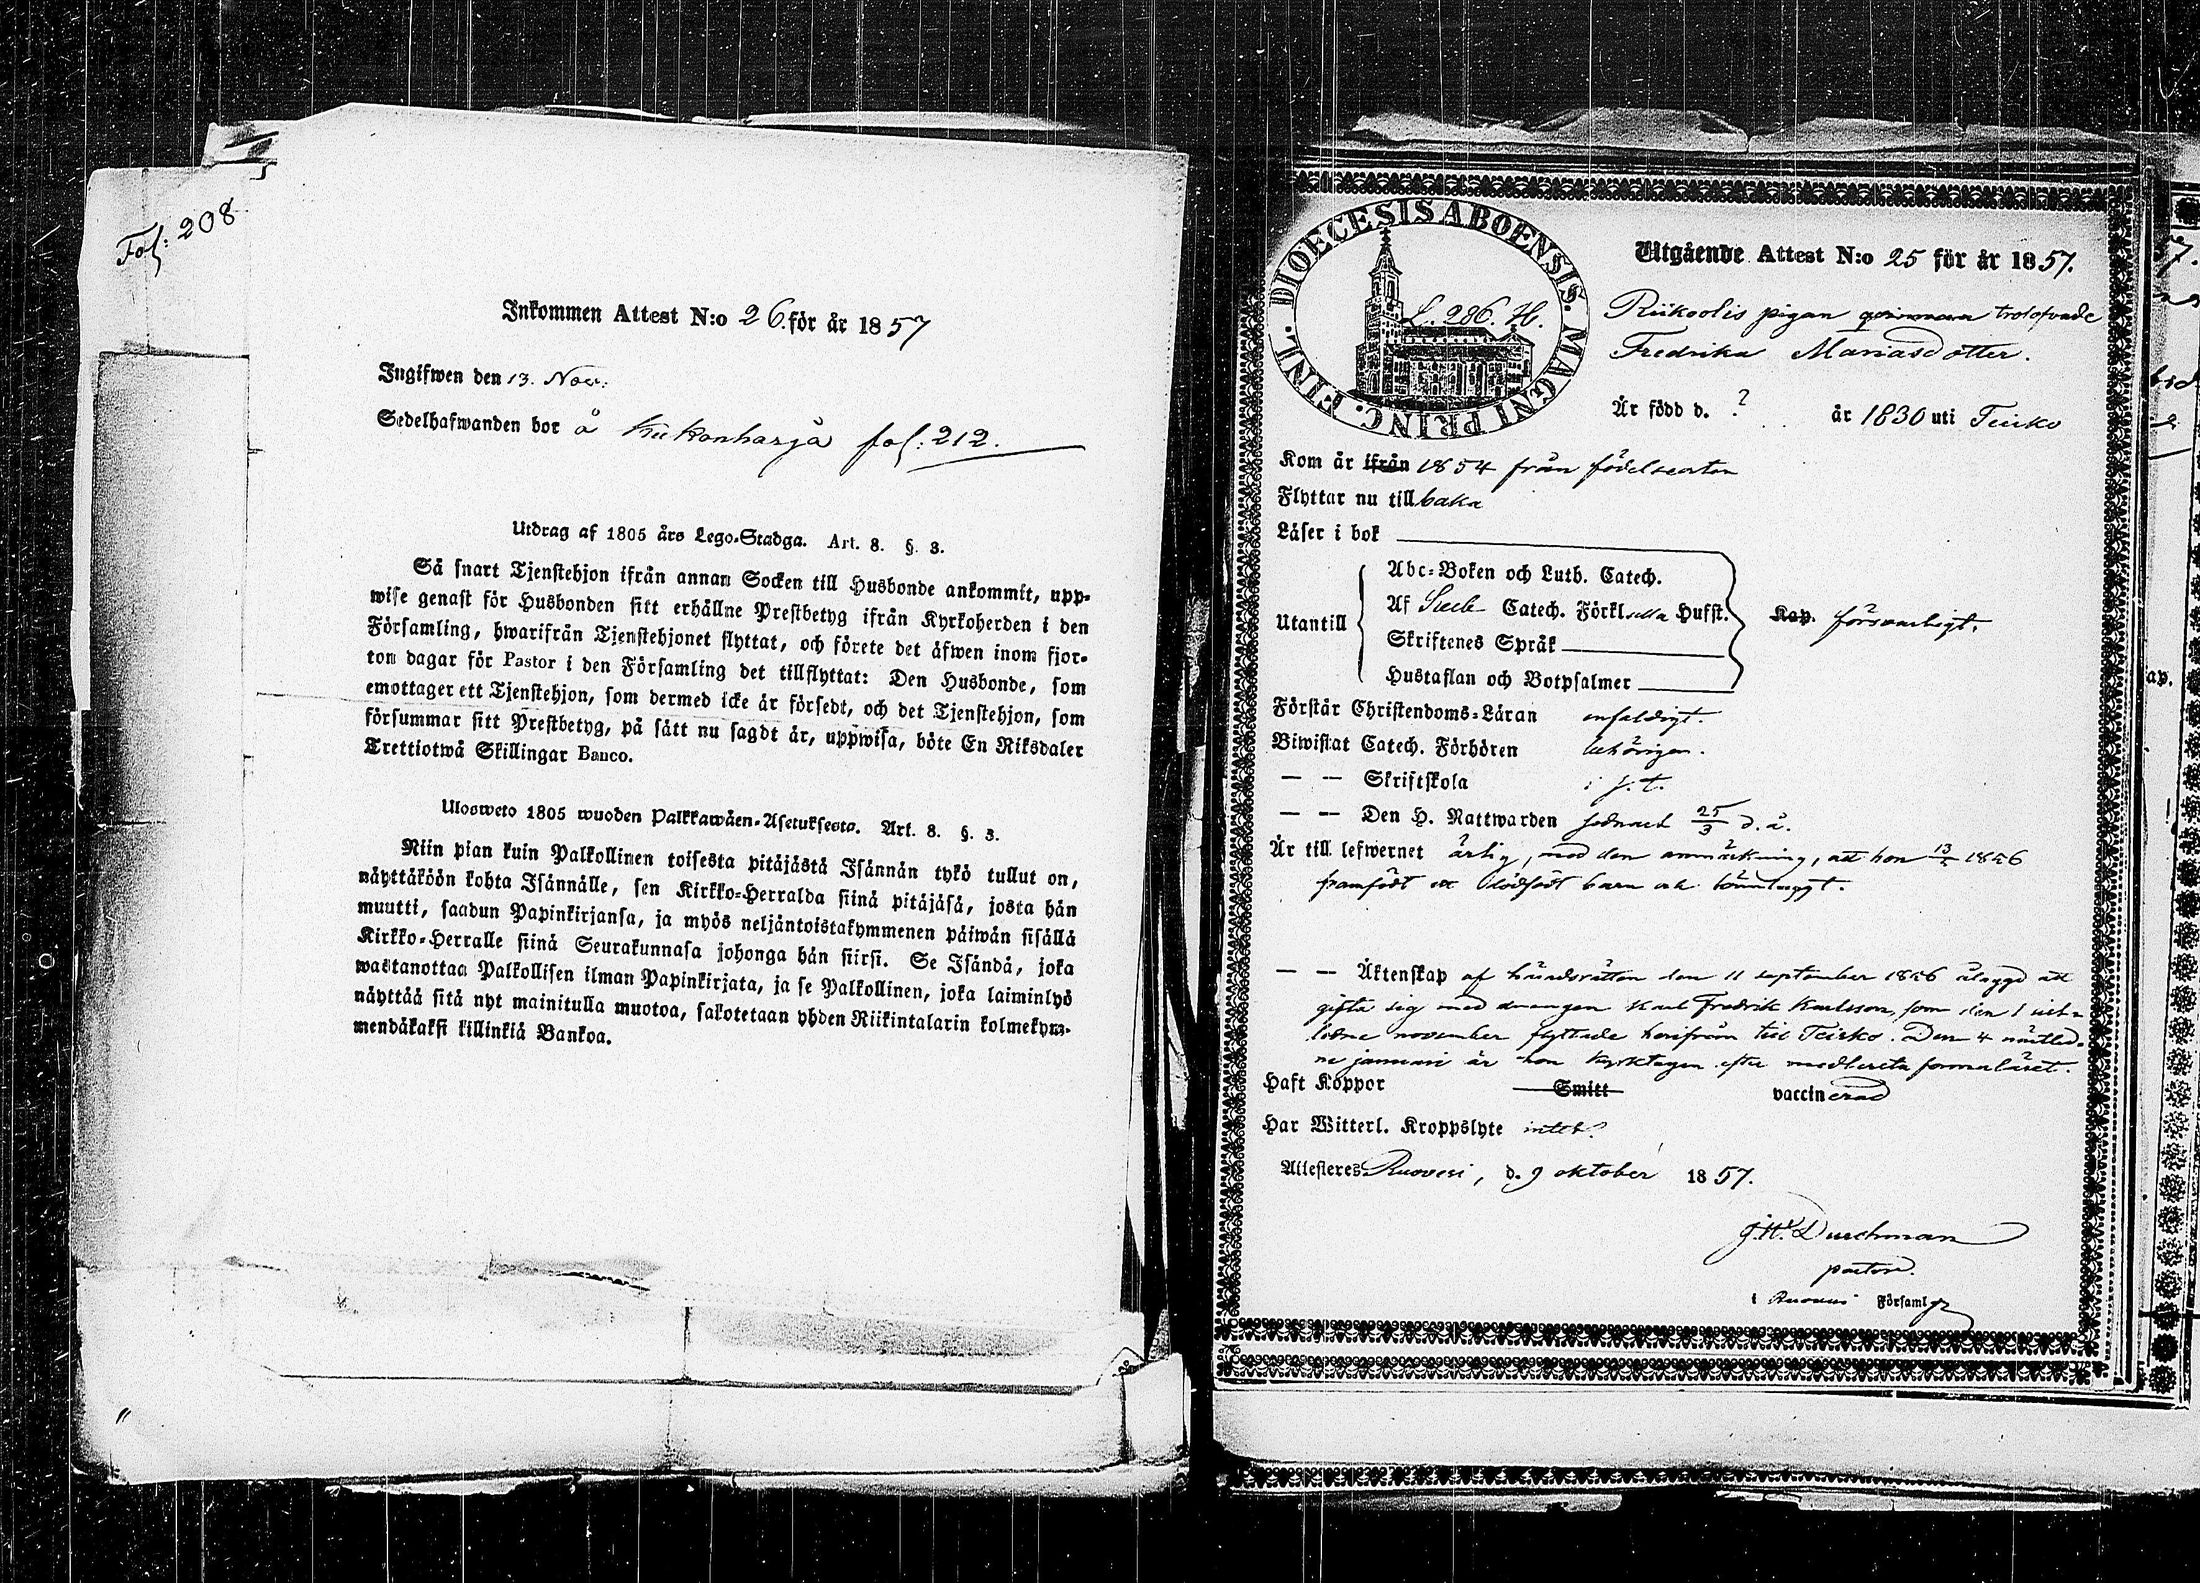 Fol: 208
Inkommen Attest N:o 26. för år 1857
Ingifwen den 13. Nov.
Sedelhafwanden bor å Kukonharjå fol: 212.
Utdrag af 1805 års Lego-Stadga. Art. 8. §. 3.
Så snart Tjenstehjon ifrån annan Socken till Husbonde ankommit, upp-
wise genast för Husbonden sitt erhållne Prestbetyg ifrån Kyrkoherden i den
Församling, hwarifrån Tjenstehjonet flyttat, och förete det äfwen inom fjor-
ton dagar för Pastor i den Församling det tillflyttat: Den Husbonde, som
emottager ett Tjenstehjon, som dermed icke är försedt, och det Tjenstehjon, som
försummar sitt Prestbetyg, på sätt nu sagdt är, uppwisa, böte En Riksdaler
Trettiotwå Skillingar Banco.
Ulosweto 1805 wuoden Palkkawäen-Asetuksesta. Art. 8. §. 3.
Niin pian kuin Palkollinen toisesta pitäjästä Isännän tykö tullut on,
näyttäköön kohta Isännälle, sen Kirkko-Herralda siinä pitäjäsä, josta hän
muutti, saadun Papinkirjansa, ja myös neljäntoistakymmenen päiwän sisällä
Kirkko-Herralle siinä Seurakunnasa johonga hän siirsi. Se Isändä, joka
wastanottaa Palkollisen ilman Papinkirjata, ja se Palkollinen, joka laiminlyö
näyttää sitä nyt mainitulla muotoa, sakotetaan yhden Riikintalarin kolmekym-
mendäkaksi killinkiä Bankoa.
DIOECESIS ABOENSIS. MAGNI PRINC. FINL.
L. 286. H.
Utgående Attest N:o 25 för år 1857.
Riikoolis pigan qvinnan trolofvade
Fredrika Mariasdotter.
Är född d. ? år 1830 uti Teisko
Kom år ifrån 1854 från födelseorten
Flyttar nu till baka
Läser i bok
Utantill
Abc-Boken och Luth. Catech.
Af Sveb. Catech. Förkl Hufst. Kap. försvarligt.
Skriftenes Språk
Hustaflan och Botpsalmer
Förstår Christendoms-Läran enfaldigt.
Biwistat Catech. Förhören behörigen.
— — Skriftskola i s. t.
— — Den H. Nattwarden sednast 25/3 d. å.
Är till lefwernet ärlig, med den anmärkning, att hon 13/ 1856
framfödt ett dödfödt barn och lönnlaggt.
— — Äktenskap af häradsrätten den 11 september 1856 ålaggd att
gifta sig med drängen Karl Fredrik Karlsson, som den 1 sist-
lidne november flyttade härifrån till Teisko. Den 4 nästled-
ne januari är hon kyrktagen efter medlersta formuläret.
Haft Koppor Smitt vaccinerad
Har Witterl. Kroppslyte intet.
Attesteres Ruovesi, d. 9 oktober 1857.
J.H. Durchman
pastor.
i Ruovesi Församlg